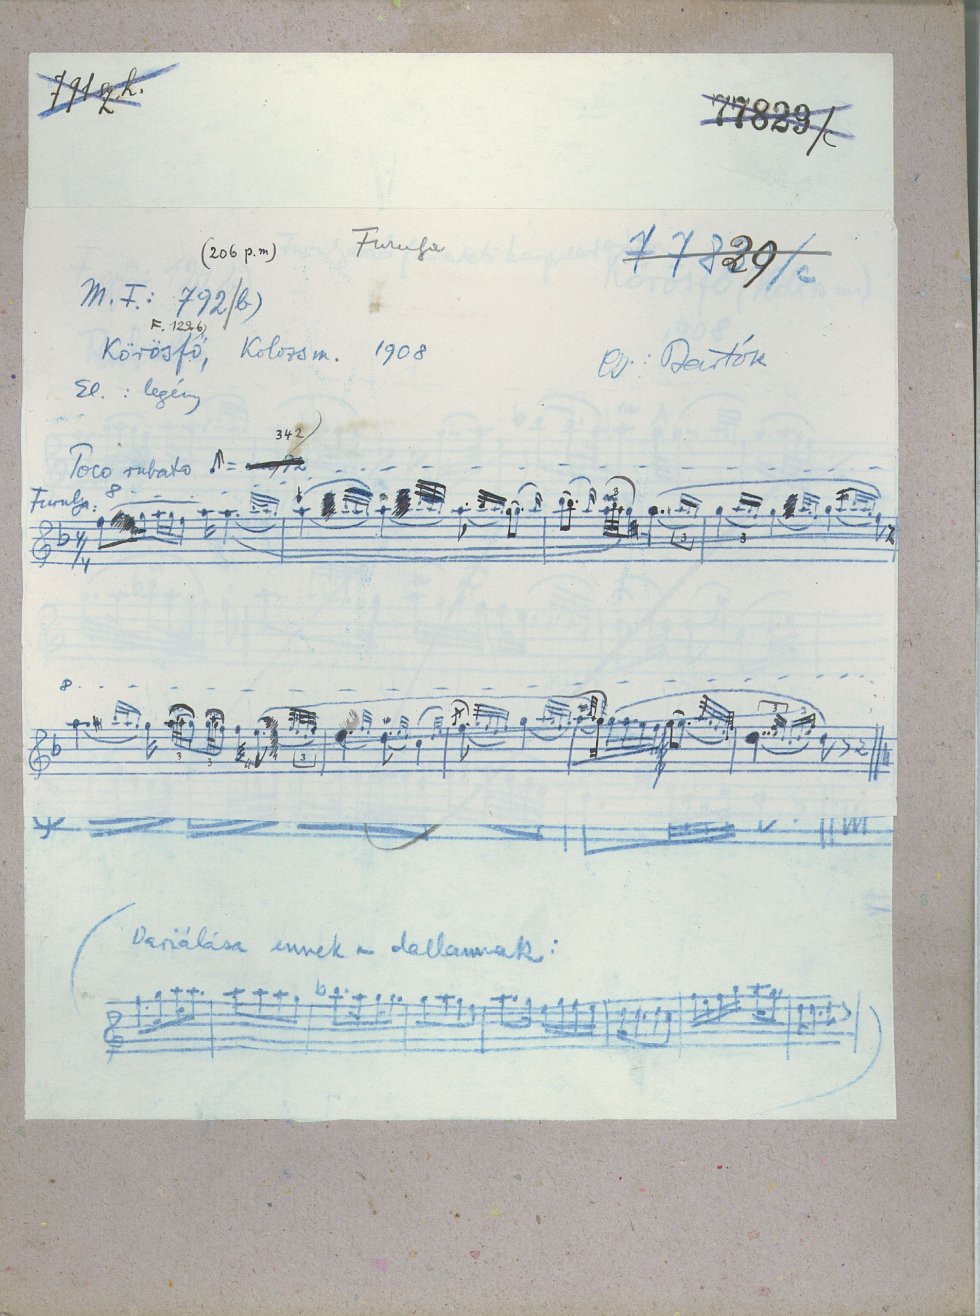 791 sz. h.
77829/c
(206 p.m) Furulya
77829/c
M. F.: 792/b)
F. 1226)
Körösfő, Kolozsm. 1908
Gy.: Bartók
El. : legény
342
Poco rubato ♪=
Furulya: 8
4/4
3 3
8
3 3 3 3
Variálása ennek a dallamnak: